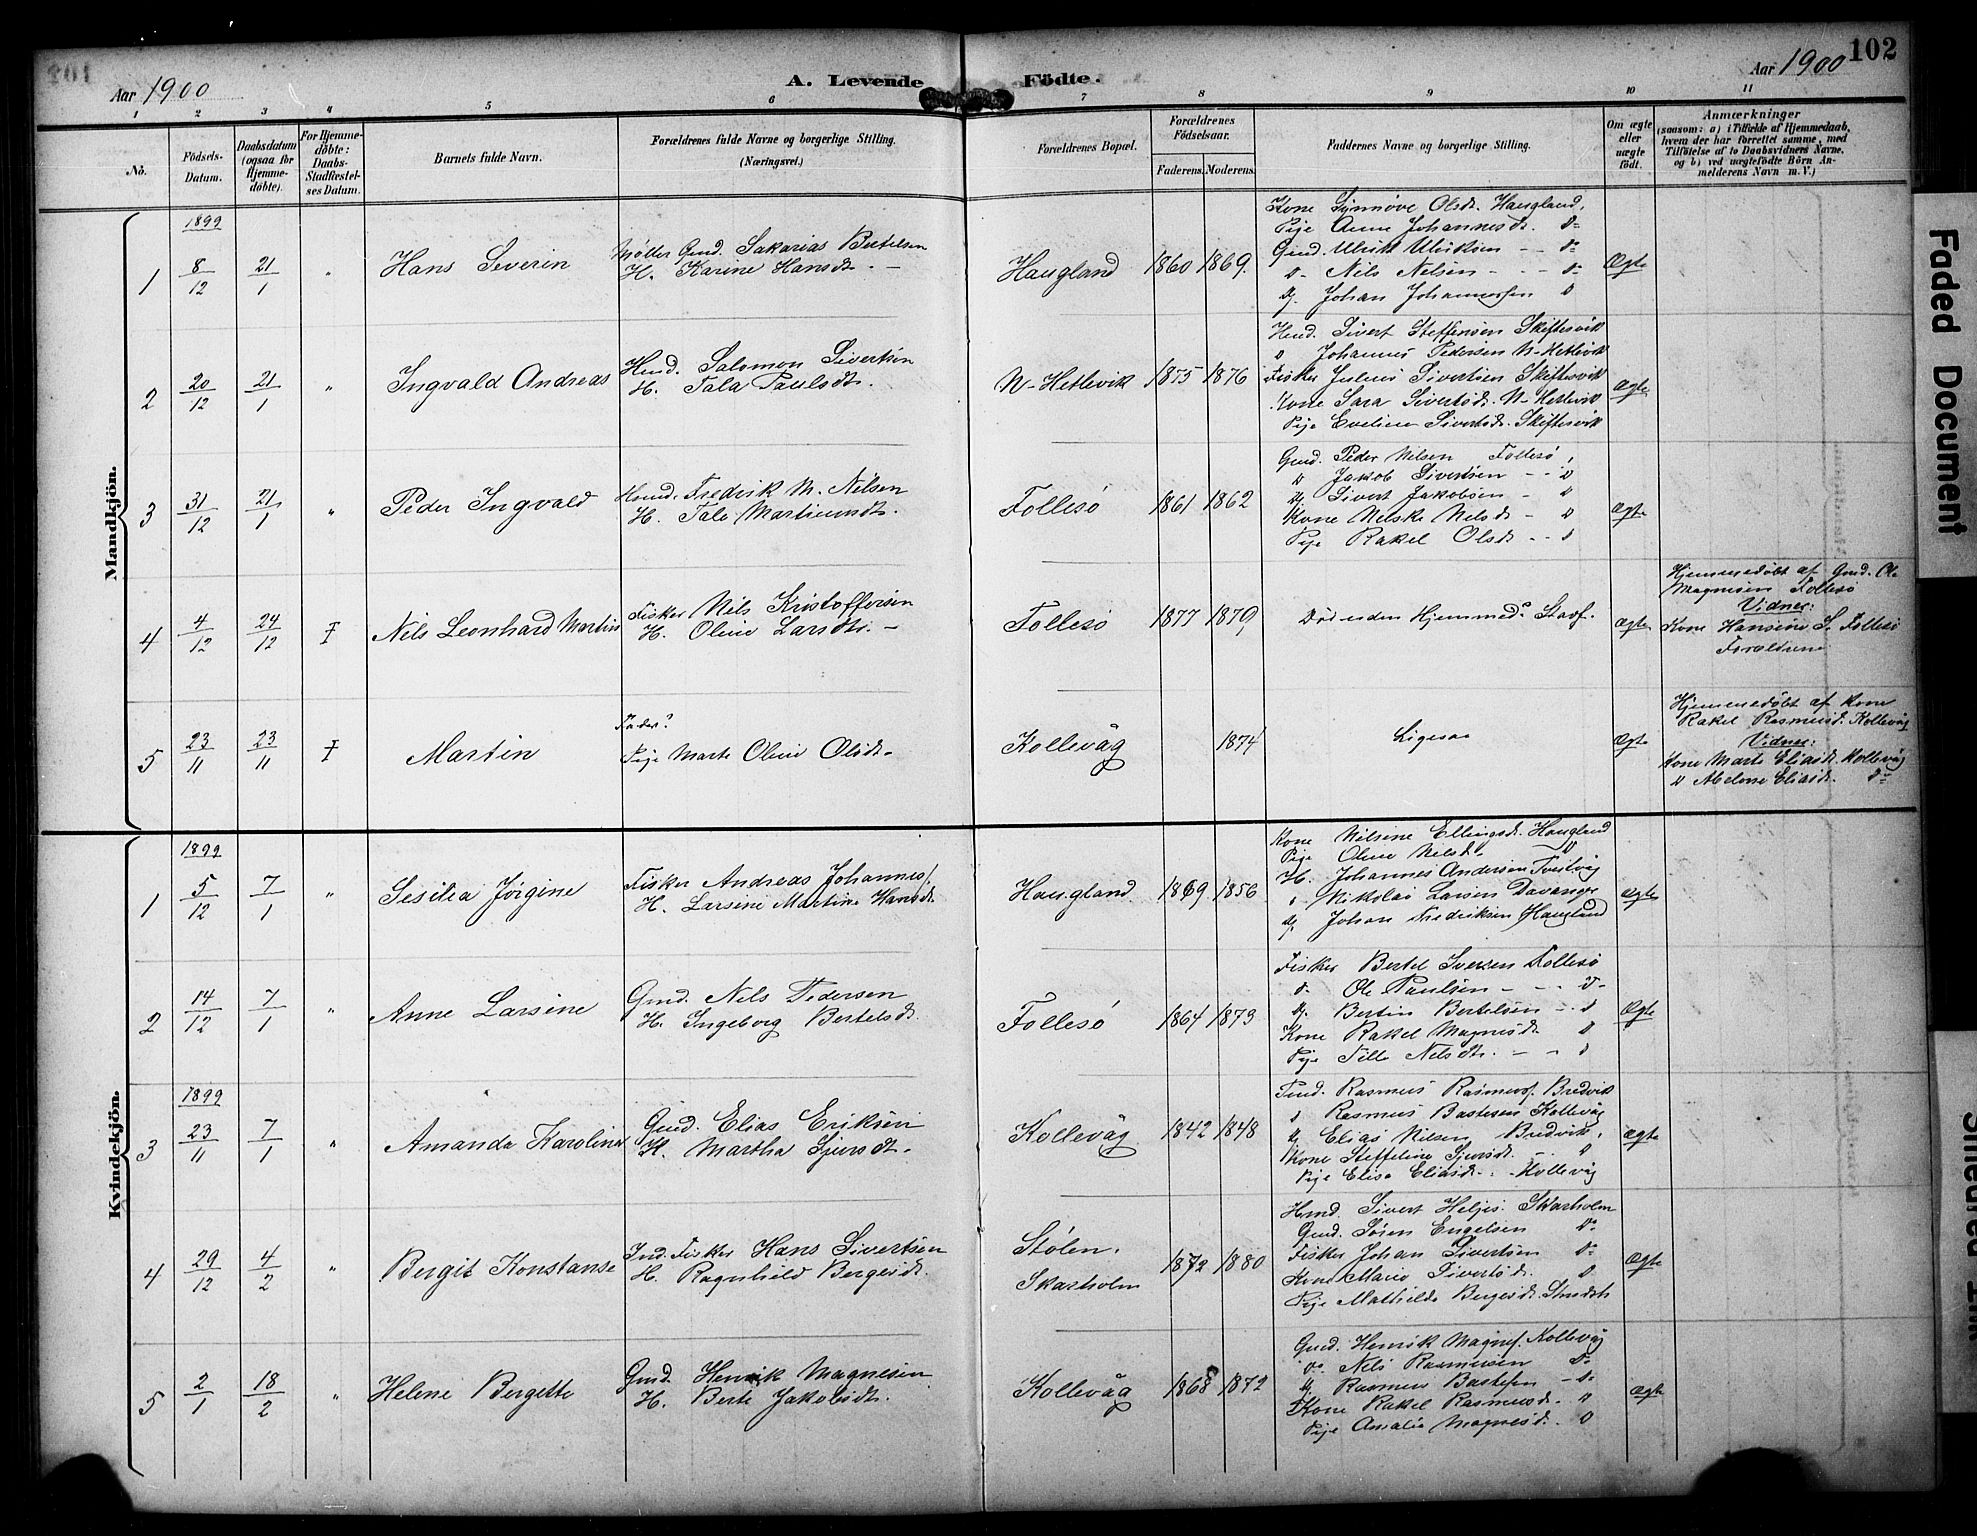 102
Aar 1900
A. Levende Födte.
Aar 1900
1 2 3 4 5 6 7 8 9 10 11
No.
Födsels-
Datum.
Daabsdatum
(ogsaa for
Hjemme-
döbte).
For Hjemme-
döbte:
Daabs-
Stadfæstel-
ses Datum.
Barnets fulde Navn.
Forældrenes fulde Navne og borgerlige Stilling.
(Næringsvei.)
Forældrenes Bopæl.
Forældrenes
Födselsaar.
Faderens. Moderens.
Faddernes Navne og borgerlige Stilling.
Om ægte
eller
uægte
födt.
Anmærkninger
(saasom: a) i Tilfælde af Hjemmedaab,
hvem der har forrettet samme, med
Tilföielse af to Daabsvidners Navne,
og b) ved uægtefödte Börn An-
melderens Navn m. V.)
Mandkjön.
1899
1 8/12 21/1 "
Hans Severin
Gmd. Sakarias Bertelsen
H. Karine Hansdt. -
Haugland
1860 1869
Kone Synnøve Olsdt. Haugland.
Pije Anne Johannesdt. do
Gmd. Ulrik Ulriksen - - do
do - Nils Nelsen - - - do
Johan Johannessen do
Ægte
2 20/12 21/1 "
Ingvald Andreas
Hmd. Salomon Sivertsen
H. Tala Paulsdt.
N-Hetlevik
1875 1876
Hmd. Sivert Steffensen Skiftesvik
Johannes Pedersen N-Hetlevik
Fisker Julius Sivertsen Skiftesvik
Kone Sara Sivertsdt. N-Hetlevik
Pije Eveline Sivertsdt. Skiftesvik
Ægte
3 31/12 21/1 "
Peder Ingvald
Hmd. Fredrik M. Nilsen
H. Tale Martinusdt.
Follesø
1861 1862
Gmd. Peder Nilsen Follesø
Jakob Sivertsen - - do
Sivert Jakobsen - do
Kone Nilske Nilsdt - do
Pije Rakel Olsdt - - do
Ægte
4 4/12 24/12 F
Nils Leonhard Martin
Fisker Nils Kristoffersen
H. Oline Larsdtr. -
Follesø
1877 1879
Død uden Hjemmed. Stadf.
Ægte
Hjemmedøbt af Gmd. Ole
Magnesen Follesø
Vidner:
Kone Hansine S. Follesø
Forældrene
5 23/11 23/11 F
Martin
Fader?
Pije Marte Oline Olsdt.
Kollevåg
1874
Ligesaa
Ægte
Hjemmedøbt af Kone
Rakel Rasmusd. Kollevåg
Vidner:
Kone Marte Eliasdt. Kollevåg
" Abelone Eliasdt. do
Kvindekjön.
1899
1 5/12 7/1 "
Sesilia Jørgine
Fisker Andreas Johannes.
H. Larsine Martine Hansdt.
Haugland
1869 1856
Kone Nilsine Ellingsdt. Haugland
Pije Oline Nilsdt. do
H. Johannes Andersen Tveitvåg
Nikolai Larsen Davanger
Johan Fredriksen Haugland
Ægte
2 14/12 7/1 "
Anne Larsine
Gmd. Nils Pedersen
H. Ingeborg Bertelsdt.
Follesø
1864 1873
Fisker Bertel Iversen Follesø
do. Ole Paulsen - - - do
Bertin Bertelsen - - do
Kone Rakel Magnesdt. do
Pije Nille Nilsdtr. - - do
Ægte
1899
3 23/11 7/1 "
Amanda Karoline
Gmd. Elias Eriksen
H. Martha Sjursdt.
Kollevåg
1842 1848
Rasmus Rasmuss. Bredvik
Rasmus Bastesen Kollevåg
Elias Nilsen Bredvik.
Kone Steffeline Sjursdt. - do
Pije Elisa Eliasdt. - Kollevåg
Ægte
4 29/12 4/2 "
Bergit Konstanse
Ind. Fisker Hans Sivertsen
H. Ragnhild Bergesdt.
Stølen.
Skarholm
1872 1880
Hmd. Sivert Heljes. Skarholm
Gmd. Søren Engelsen do
Fisker Johan Sivertsen do
Kone Marie Sivertsdt. do
Pije Mathilde Bergesdt.
Ægte
5 2/1 18/2 "
Helene Bergitte
Gmd. Henrik Magnesen
H. Berte Jakobsdt.
Kollevåg
1868 1872
Gmd. Henrik Magnes. Kollevåg
do Nils Rasmussen do
Rasmus Bastesen - do
Kone Rakel Rasmusdt. "
Pije Amalie Magnesdt. do
Ægte
Faded Document
Smeared Ink